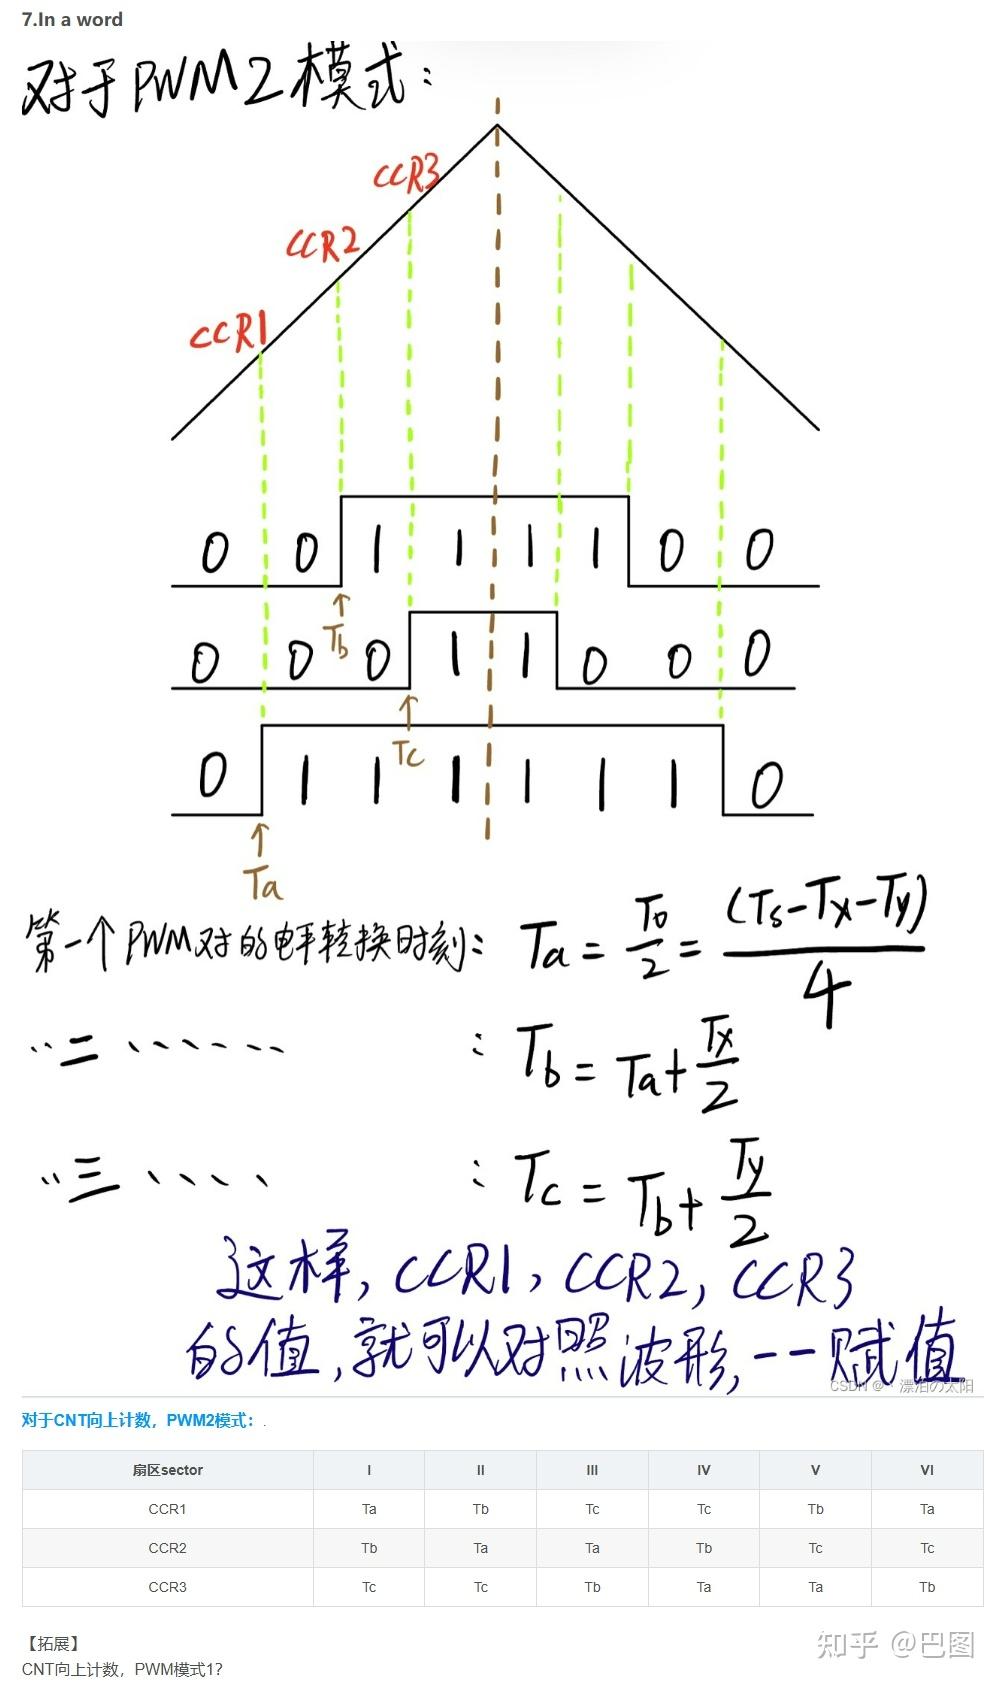 7.In a word
对于PWM2模式：
CCR3
CCR2
CCR1
0 0 1 1 1 1 0 0
Tb
0 0 0 1 1 0 0 0
Tc
0 1 1 1 1 1 1 0
Ta
第一个PWM对的电平转换时刻： Ta = T0/2 = (Ts-Tx-Ty)/4
〃二 、、、、、、 ： Tb = Ta + Tx/2
〃三 、、、、 ： Tc = Tb + Ty/2
这样，CCR1，CCR2，CCR3
的值，就可以对照波形，一一赋值
CSDN @丶漂泊の太阳
对于CNT向上计数，PWM2模式：.
扇区sector I II III IV V VI
CCR1 Ta Tb Tc Tc Tb Ta
CCR2 Tb Ta Ta Tb Tc Tc
CCR3 Tc Tc Tb Ta Ta Tb
【拓展】
知乎 @巴图
CNT向上计数，PWM模式1?